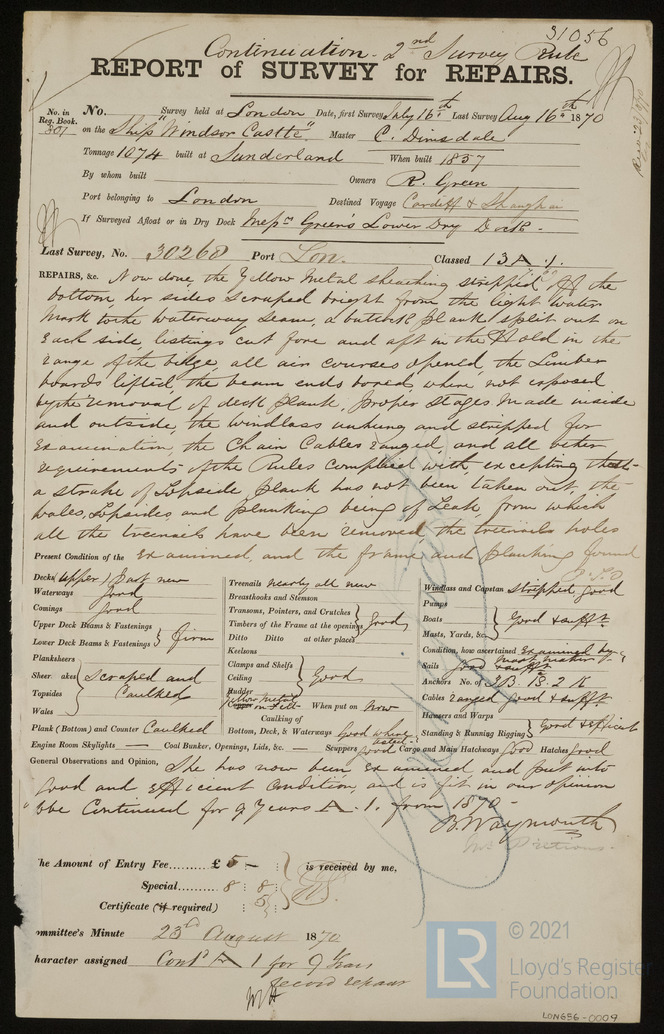 31056
Continuation - 2nd Survey Rule
REPORT of SURVEY for REPAIRS.
Recd 23/8/70
No. in Reg. Book. 301
No. Survey held at London Date, first Survey July 16th Last Survey Aug 16th 1870
on the Ship "Windsor Castle" Master C. Dinsdale
Tonnage 1074 built at Sunderland When built 1857
By whom built Owners R. Green
Port belonging to London Destined Voyage Cardiff & Shanghai
If Surveyed Afloat or in Dry Dock Messrs Green's Lower Dry Dock -
Last Survey, No. 30268 Port Lon. Classed 13 A .1.
REPAIRS, &c. Now done, the Yellow Metal sheathing stripped off the
bottom, her sides scraped bright from the light water
mark to the waterway seam, a buttock plank split out on
each side, listings cut fore and aft in the Hold in the
range of the bilge, all air courses opened, the Limber
boards lifted, the beam ends bored, where not exposed
by the removal of deck plank, proper stages made inside
and outside, the windlass unhung and stripped for
examination, the Chain Cables ranged, and all other
requirements of the Rules complied with, excepting that
a strake of Topside plank has not been taken out, the
wales, topsides and planking being of Teak, from which
all the treenails have been removed the treenails holes
Present Condition of the examined, and the frame and planking found
P.T.O
Decks (upper) part new
Waterways good
Comings good
Upper Deck Beams & Fastenings
Lower Deck Beams & Fastenings } firm
Planksheers
Sheerstrakes
Topsides
Wales } scraped and Caulked
Plank (Bottom) and Counter Caulked
Treenails nearly all new
Breasthooks and Stemson
Transoms, Pointers, and Crutches
Timbers of the Frame at the openings
Ditto Ditto at other places } Good
Keelsons
Clamps and Shelfs
Ceiling
Rudder } Good
Yellow Metal
Copper on Felt When put on Now
Caulking of
Bottom, Deck, & Waterways Good where tested
Windlass and Capstan stripped good
Pumps
Boats
Masts, Yards, &c. } Good & sufft.
Condition, how ascertained Examined by mast maker
Sails Good & sufft
Anchors No. of 3 B. 1 S. 2 K
Cables ranged good & sufft.
Hawsers and Warps
Standing & Running Rigging } Good & efficient
Engine Room Skylights — Coal Bunker, Openings, Lids, &c. — Scuppers good Cargo and Main Hatchways good Hatches good
General Observations and Opinion, She has now been examined and put into
good and efficient condition, and is fit in our opinion
to be Continued for 9 Years A. 1. from 1870 -
B. Waymouth
The Amount of Entry Fee......... £ 5 -
Special......... 8 : 8 :
Certificate (if required) : 5 :
is received by me,
Committee's Minute 23rd August 1870
Character assigned Contd A 1 for 9 Years
record repair
© 2021
LR
Lloyd's Register
Foundation
LON656-0009